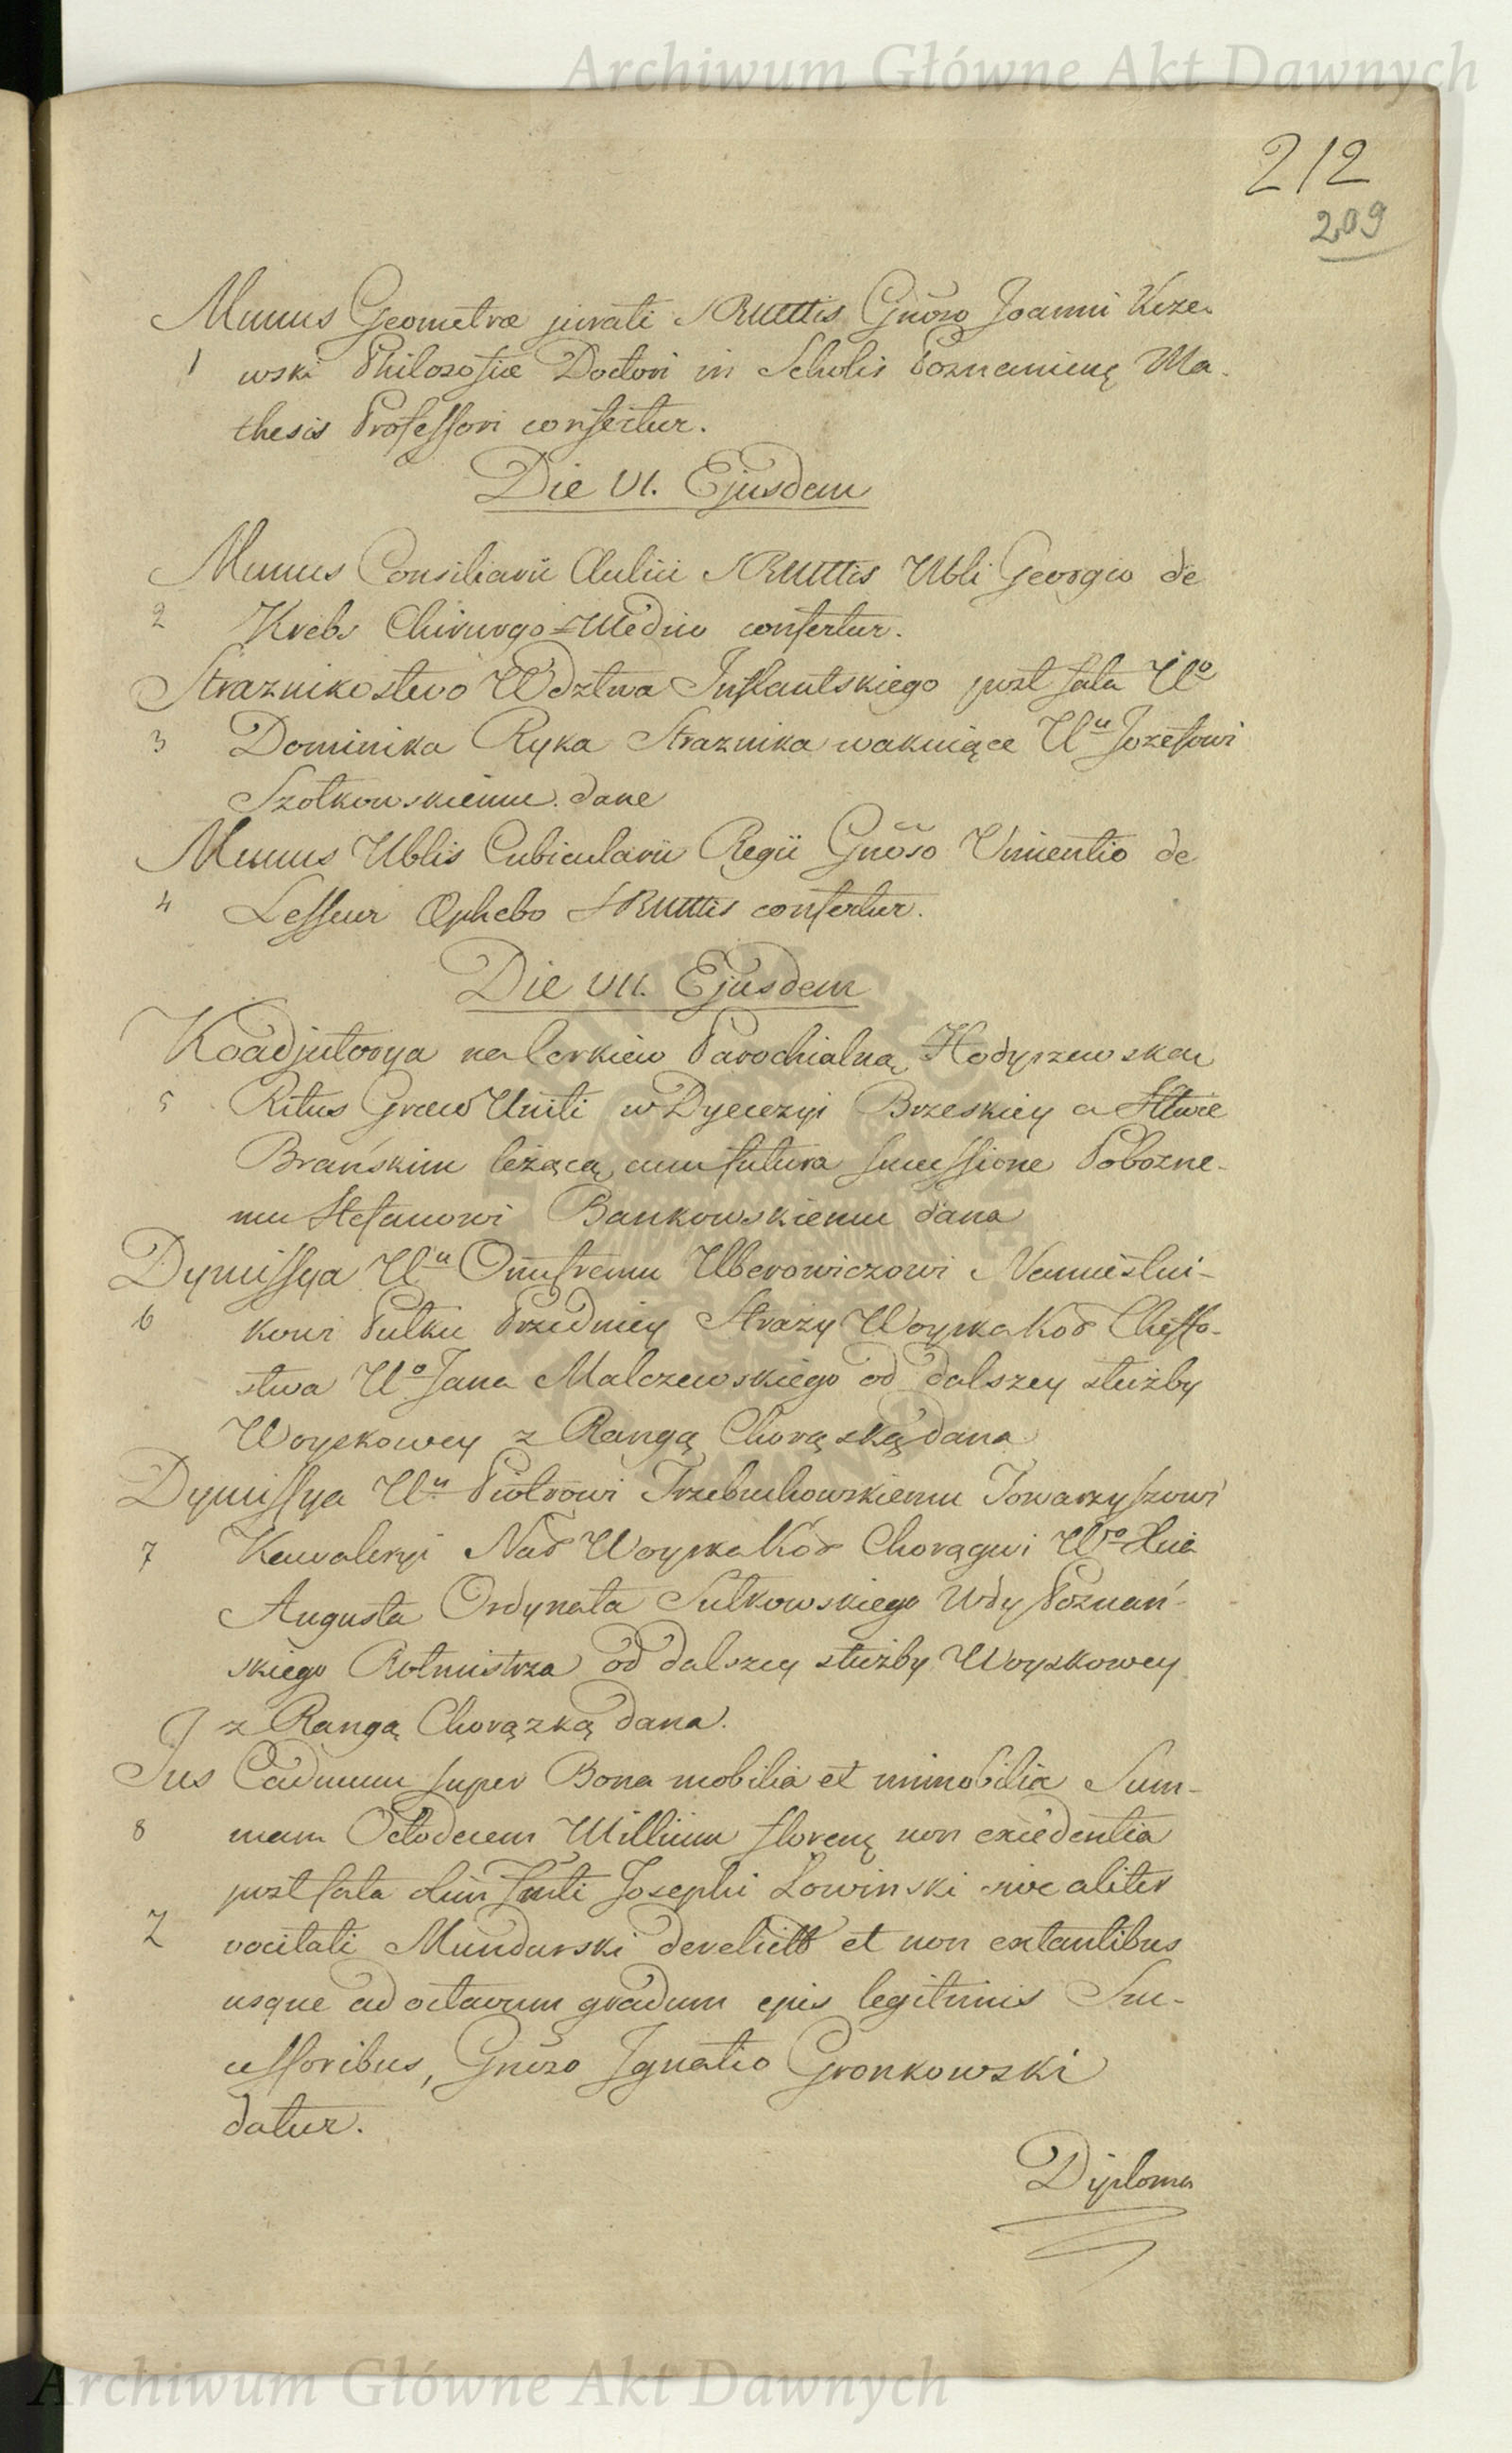 Archiwum Główne Akt Dawnych
212
209
Munus Geometræ jurati SRMttis Gnoso Joanni Krze-
1 wski Philozofiæ Doctori in Scholis Poznanieng Ma-
thesis Professori confertur.
Die VI. Ejusdem
Munus Consiliarii Aulici SRMttis Mbli Georgio de
2 Krebs Chirurgo-Medico confertur.
Straznikostwo Wdztwa Inflantskiego post fata Uo
3 Dominika Ryka Straznika wakuiące Uu Jozefowi
Szotkowskiemu dane
Munus Mblis Cubicularii Regii Gnoso Vincentio de
4 Lesseur Ephebo SRMttis confertur.
Die VII. Ejusdem
Koadjutorya na Cerkiew Parochialną Hodyszewskau
5 Ritus Græco Uniti w Dyecezyi Brzeskiey a Stwie
Brańskim leżącą cum futura successione Pobozne-
mu Stefanowi Bankowskiemu dana
Dymissya Uu Onufremu Uberowiczowi Namiestni-
6 kowi Pułku Przedniey Strazy Woyska Kod Cheffo-
stwa Uo Jana Malczewskiego od dalszey służby
Woyskowey z Rangą Chorąską dana
Dymissya Uu Piotrowi Trzebuchowskiemu Towarzyszowi
7 Kawaleryi Nad Woyska Kod Chorągwi Wo Xcia
Augusta Ordynata Sułkowskiego Wdy Poznań-
skiego Rotmistrza od dalszey służby Woyskowey
z Rangą Chorązką dana.
Jus Caducum super Bona mobilia et immobilia Sum-
8 mam Octodecem Millium floreng non excedentia
post fata olim Jósephi Lowinski sive aliter
Z vocitati Mundurski derelicta et non extantibus
usque ad octavum gradum ejus legitimis Suc-
cessoribus, Gnoso Ignatio Gronkowski
datur.
Diploma
Archiwum Główne Akt Dawnych